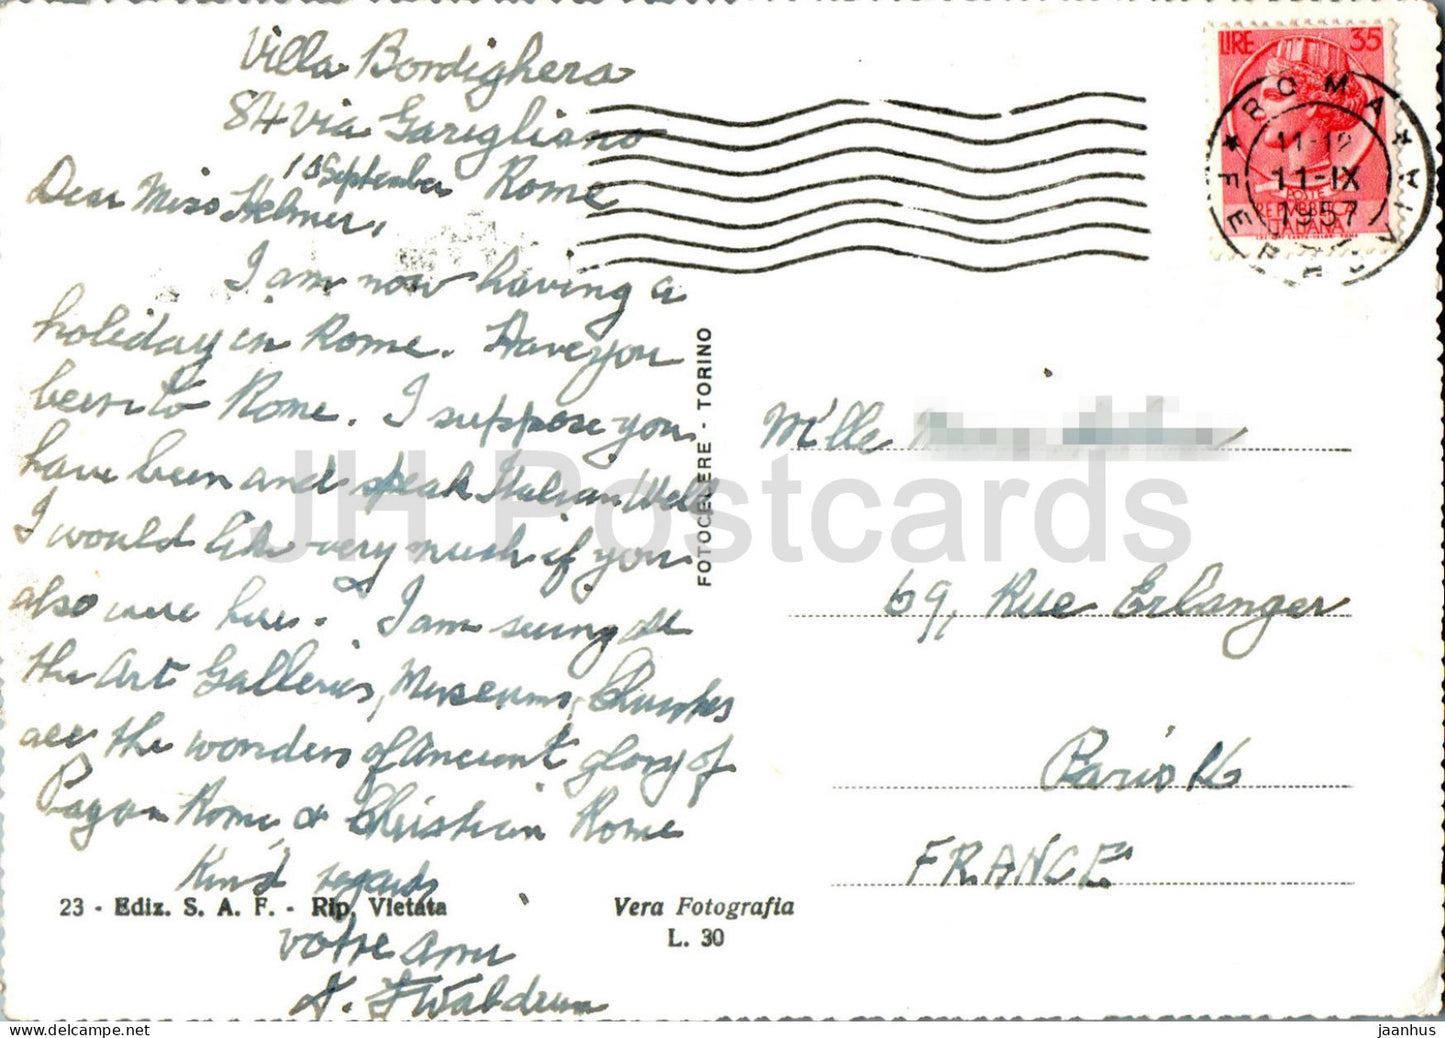 Villa Bordighera
84 Via Garigliano
10 September Rome
Dear Miss Helmer,
I am now having a
holiday in Rome. Have you
been to Rome. I suppose you
have been and speak Italian Well
I would like very much if you
also were here. I am seeing all
the Art Galleries, Museums, Churches
all the wonders of Ancient glory of
Pagan Rome & Christian Rome
Kind regards
votre ami
LIRE 35
POSTE
REPVBBLICA
ITALIANA
ROMA
11-IX
1957
FOTOCELERE - TORINO
M'lle
69, Rue Erlanger
Paris 16
FRANCE
23 - Ediz. S. A. F. - Rip. Vietata
Vera Fotografia
L. 30
JH Postcards
jaanhus
delcampe.net